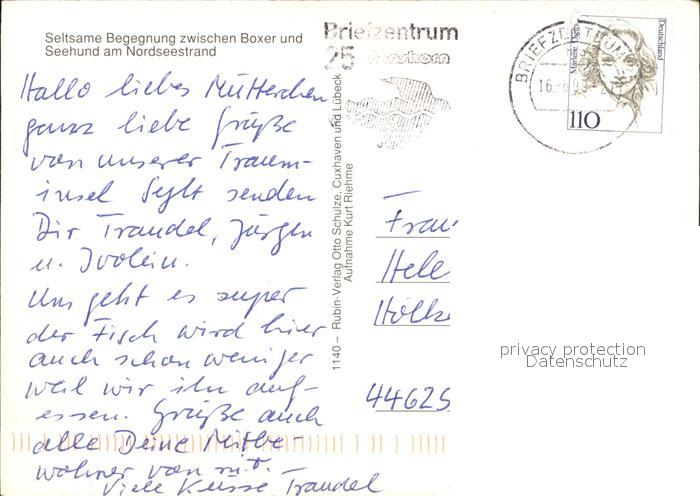 Seltsame Begegnung zwischen Boxer und
Seehund am Nordseestrand
Hallo liebes Mütterchen
ganz liebe Grüße
von unserer Traum-
insel Sylt senden
Dir Traudel, Jürgen
u.
Uns geht es super
der Fisch wird hier
auch schon weniger
weil wir ihn auf-
essen. Grüße auch
alle Deine Mitbe-
wohner von mir.
Viele Küsse Traudel
1140 – Rubin-Verlag Otto Schulze, Cuxhaven und Lübeck
Aufnahme Kurt Riehme
Briefzentrum
25 Elmshorn
BRIEFZENTRUM
16.-6.9
Deutschland
110
Frau
Hele
Hölke
44625
privacy protection
Datenschutz